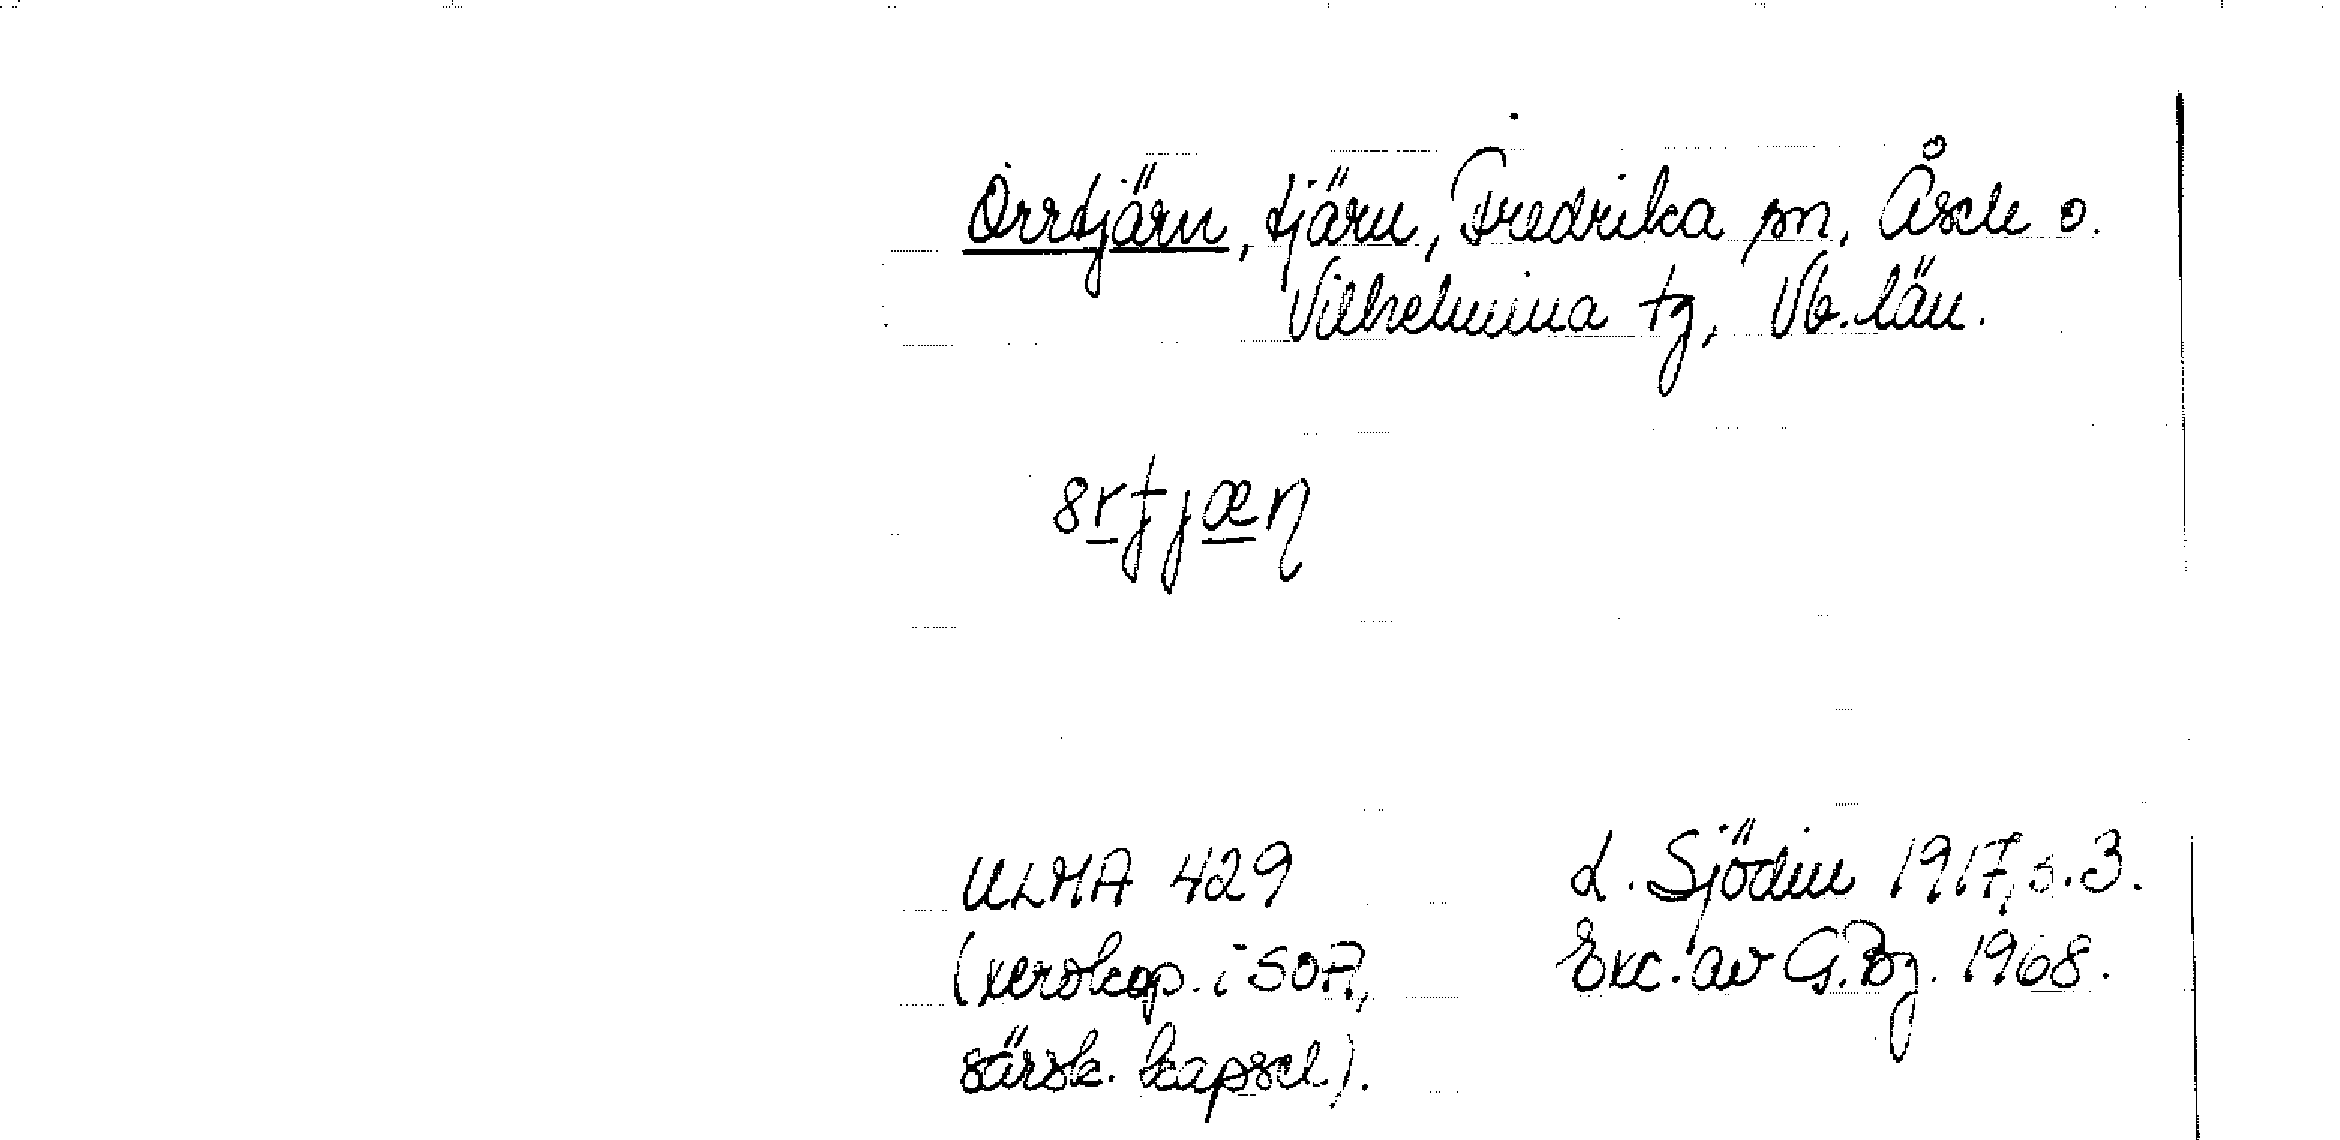 Orrtjärn, tjärn, Fredrika sn, Åsele o.
Vilhelmina tg, Vb. län.
ULMA 429
(xerokop. i SOA,
särsk. kapsel).
L. Sjödin 1917, s. 3.
Exc. av G.Bg. 1968.